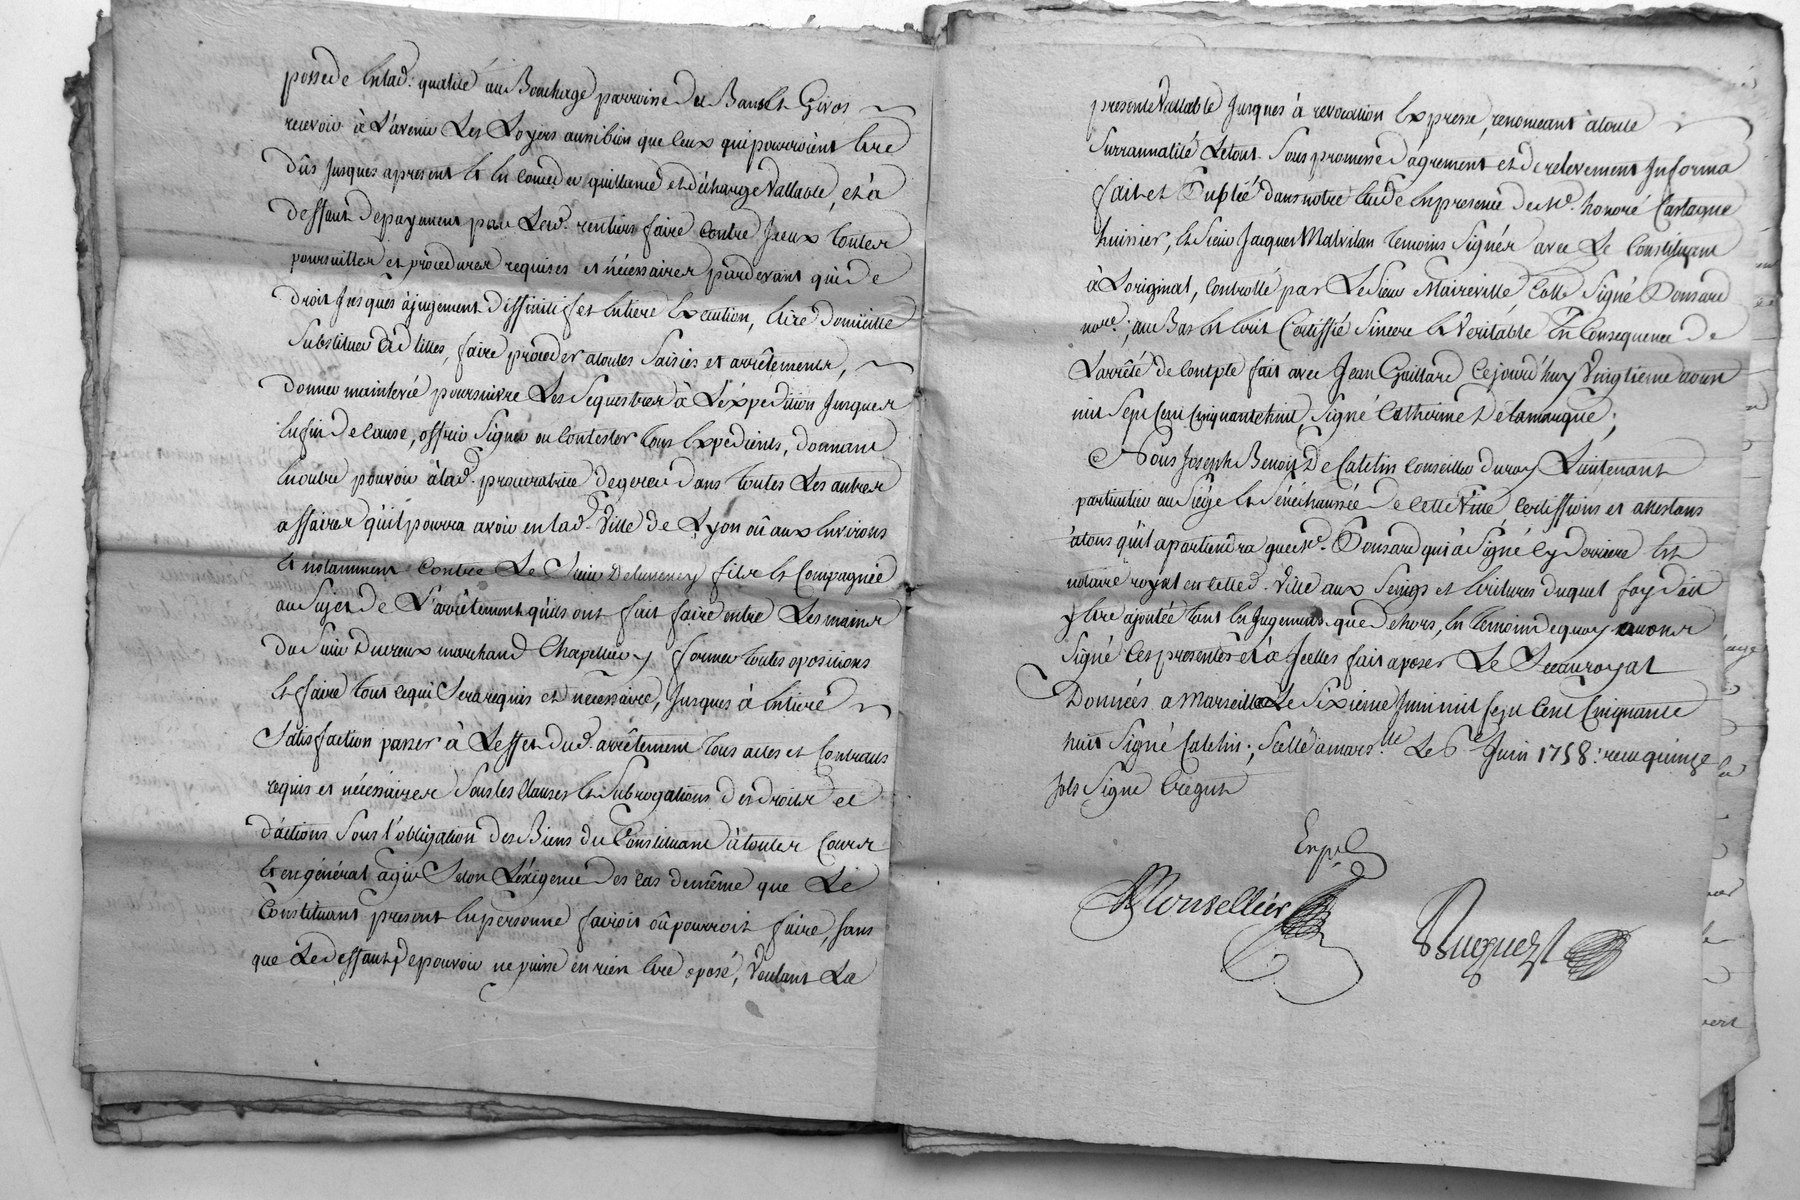 possede en lad. qualité au Bouchage parroisse de
recevoir à L'avenir Les Loyers aussi bien que Ceux qui pourroient être
dûs Jusques apresent et en conceder quittance et décharge Vallable, et à
deffaut depayement par Lesd. rentiers faire contre Jceux toutes
poursuittes et procedures requises et nécessaires pardevant qui de
droit Jusques à jugement diffinitif et Entiere Execution, Elire domicille
Substituer ad littes, faire proceder atoutes Saisies et arrêtements,
donner mainlevée poursuivre Les Sequestres à L'éxpedition Jusques
Enfin de Cause, offrir Signer ou Contester tous Expedients, donnant
En outre pouvoir à lad. procuratrice degerer dans toutes Les autres
affaires qu'il pourra avoir en lad. Ville de Lyon où aux Environs
Et notamment Contre Le Sieur fils et Compagnée
au Sujet de L'arrêtement qu'ils ont fait faire entre Les mains
du Sieur Ducreux marchand Chapellier former toutes opositions
Et faire tout cequi Sera requis et nécessaire, Jusques à Entiere
Satisfaction passer à L'effet dud. arrêtement tous actes et Contrats
requis et nécéssaires Sous les Clauses et Subrogations des droits et
d'actions Sous l'obligation des Biens du Constituant à toutes Cours
Et en général agir Selon L'éxigence des Cas demême que Le
Constituant present En personne fairoit où pourroit faire, Sans
que Le deffaut de pouvoir ne puisse en rien être oposé, Voulant La
presente Vallable Jusques à revocation Expresse, renonceant à toute
Surrannalité Letout Sous promesse d'agrement et de relevement Jn forma
fait et Publié dans notre Etude En presence de Me. honoré Castagne
huissier, et Sieur Jacques Malvilan temoins Signés avec Le Constituant
à L'original, Controllé par Le Sieur Maireville Colle Signé Ponsard
nore.; au Bas Est Ecrit Certiffié Sincere et Veritable En Consequence de
L'arrêté de Compte fait avec Jean Gaillard Cejourd'huy Vingtieme aoust
mil Sept Cent Cinquante huit, Signé Catherine Delamanque;
Nous Joseph Benoit De Catelin Conseiller du roy Lieutenant
particulier au Siége et Sénéchaussée de cette Ville Certiffions et attestons
à tous qu'il apartiendra que Me. Ponsard qui à Signé Cy derriere Est
notaire royal en cetted. Ville aux Seings et Ecritures duquel foy doit
y être ajoutée tant En Jugement que dehors, En temoin dequoy avons
Signé Ces presentes et à Jcelles fait aposer Le Sceau royal
Données a Marseille Le Sixieme Juin mil Sept Cent Cinquante
huit Signé Catelin; Scellé à mars.lle Le 6e Juin 1758: recu quinze
Sols Signé Cregut